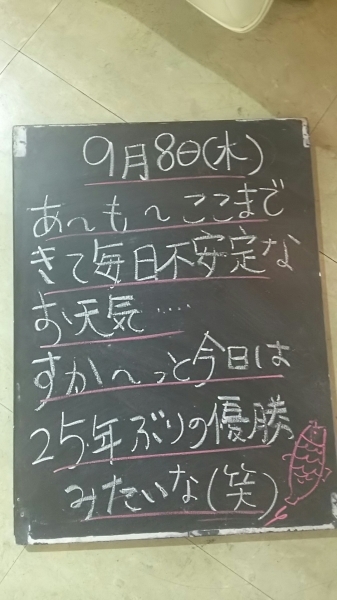 9月8日(木)
あ～も～ここまで
きて毎日不安定な
お天気....
すか～っと今日は
25年ぶりの優勝
みたいな(笑)